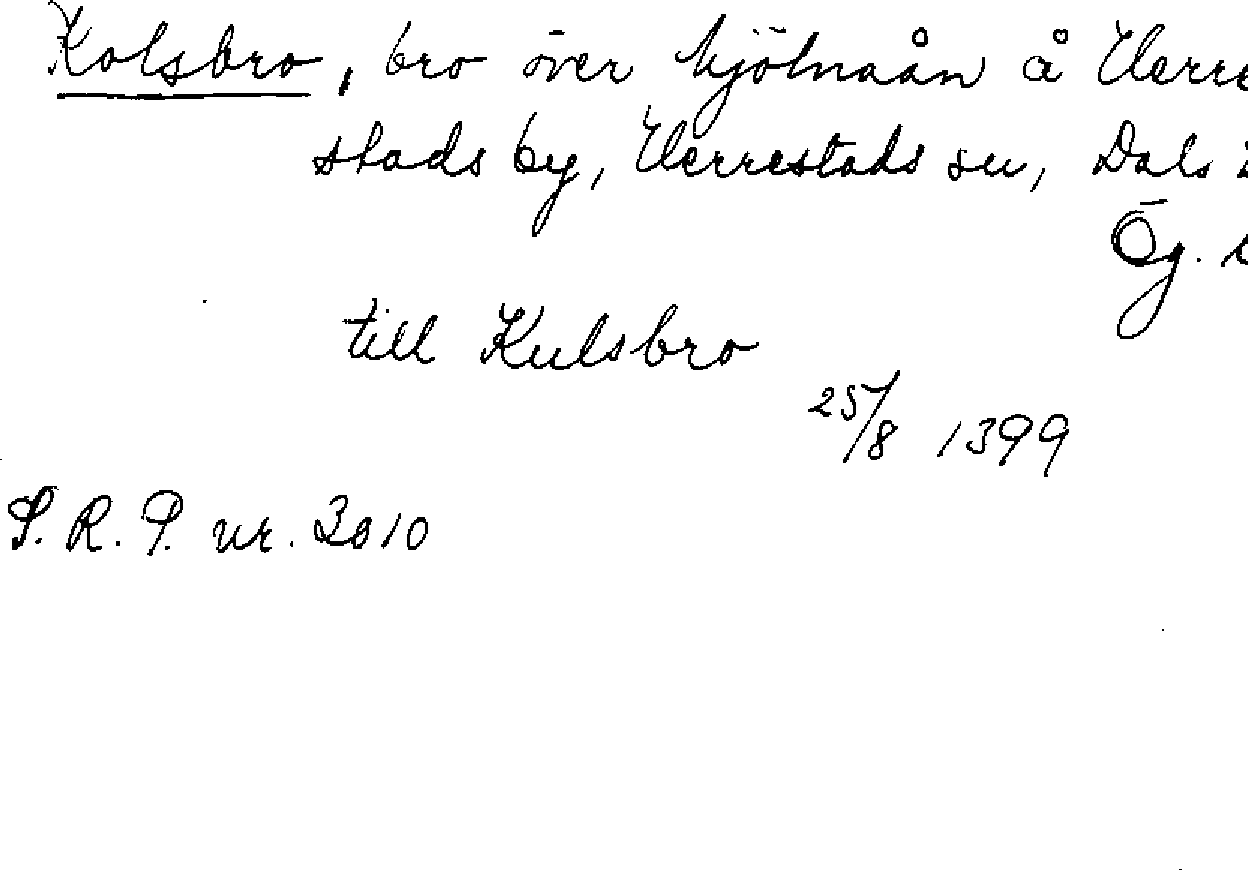 Kolsbro, bro över Mjölnaån å Herre
stads by, Herrestads sn, Dals
Ög.
till Kulsbro
25/8 1399
S. R. P. nr. 3010